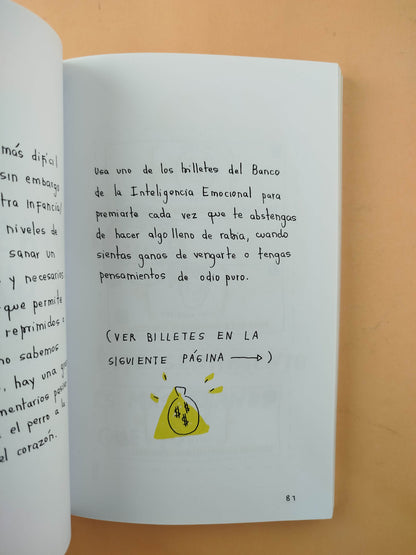 más difícil
sin embargo
tra infancia
niveles de
sanar un
y necesarios
que permite
reprimidos o
no sabemos
hay una
mentarios
el perro a la
el corazón.
Usa uno de los billetes del Banco
de la Inteligencia Emocional para
premiarte cada vez que te abstengas
de hacer algo lleno de rabia, cuando
sientas ganas de vengarte o tengas
pensamientos de odio puro.
(VER BILLETES EN LA
SIGUIENTE PÁGINA →)
$ $ $
81